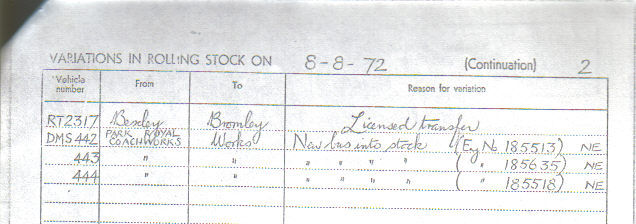 VARIATIONS IN ROLLING STOCK ON 8-8-72 (Continuation) 2
Vehicle number From To Reason for variation
RT2317 Bexley Bromley Licensed transfer
DMS 442 PARK ROYAL COACHWORKS Works New bus into stock (Eng No 185513) NE
443 " " " " " " ( " 185635) NE
444 " " " " " " ( " 185518) NE